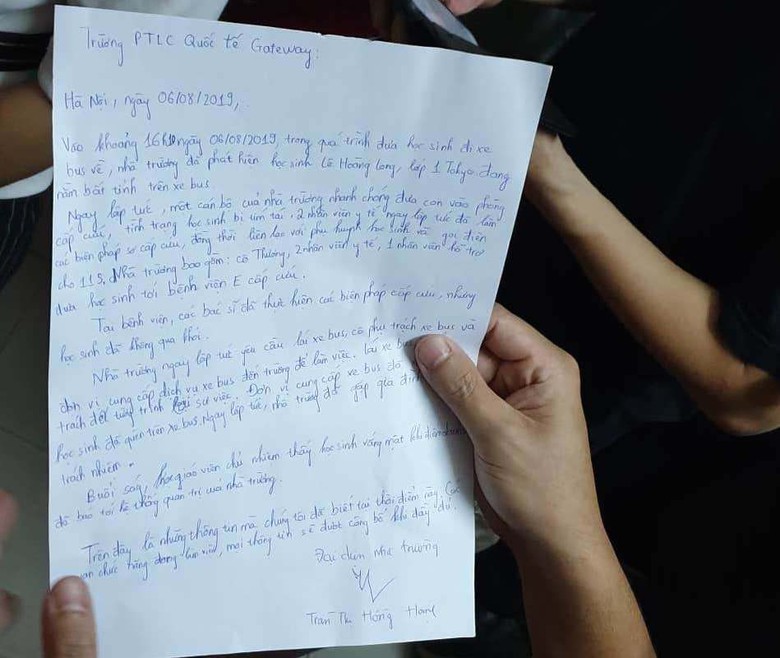 Trường PTLC Quốc tế Gateway:
Hà Nội, ngày 06/08/2019,.
Vào khoảng 16h ngày 06/08/2019, trong quá trình đưa học sinh đi xe
bus về, nhà trường đã phát hiện học sinh Lê Hoàng Long, lớp 1 Tokyo đang
nằm bất tỉnh trên xe bus.
Ngay lập tức, một cán bộ của nhà trường nhanh chóng đưa con vào phòng
cấp cứu, tình trạng học sinh bị tím tái, 2 nhân viên y tế ngay lập tức đã làm
các biện pháp sơ cấp cứu, đồng thời liên lạc với phụ huynh học sinh và gọi điện
cho 115. Nhà trường bao gồm: cô Thương, 2 nhân viên y tế, 1 nhân viên hỗ trợ
đưa học sinh tới bệnh viện E cấp cứu.
Tại bệnh viện, các bác sĩ đã thực hiện các biện pháp cấp cứu, nhưng
học sinh đã không qua khỏi.
Nhà trường ngay lập tức yêu cầu lái xe bus, cô phụ trách xe bus và
đơn vị cung cấp dịch vụ xe bus đến trường để làm việc. Lái xe
trách để tường trình sự việc. Đơn vị cung cấp xe bus đó
học sinh đã quên trên xe bus. Ngay lập tức, nhà trường đã gặp gia đình
trách nhiệm.
Buổi sáng, giáo viên chủ nhiệm thấy học sinh vắng mặt khi điểm
đã báo tới hệ thống quản trị của nhà trường.
Trên đây là những thông tin mà chúng tôi đã biết tại thời điểm này. Các
chức năng đang làm việc, mọi thông tin sẽ được công bố khi đầy đủ.
Đại diện nhà trường
Trần Thị Hồng Hạnh